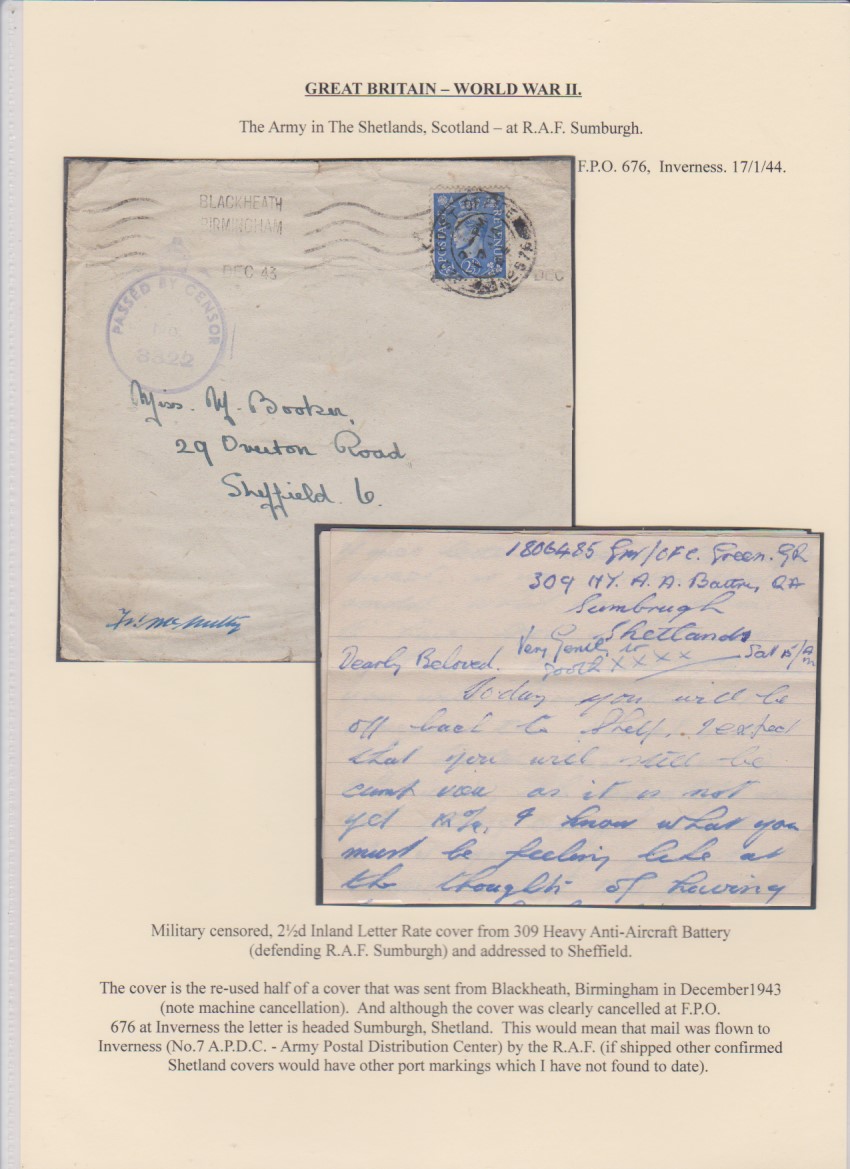 GREAT BRITAIN – WORLD WAR II.
The Army in The Shetlands, Scotland – at R.A.F. Sumburgh.
F.P.O. 676, Inverness. 17/1/44.
BLACKHEATH
BIRMINGHAM
DEC 43
DEC
POSTAGE REVENUE
PASSED BY CENSOR
No.
8822
Miss. M. Booker,
29 Overton Road
Sheffield. 6.
1806485 Gnr/CFC. Green. GR
309 HY. A. A. Battry, RA
Sumbrugh
Shetlands
Very Gentle to
tooth XXXX
Dearly Beloved.
Today you will be
off back to Sheff, I expect
that you will still be
as it is not
yet I know what you
must be feeling like at
the thoughts of having
Military censored, 2½d Inland Letter Rate cover from 309 Heavy Anti-Aircraft Battery
(defending R.A.F. Sumburgh) and addressed to Sheffield.
The cover is the re-used half of a cover that was sent from Blackheath, Birmingham in December1943
(note machine cancellation). And although the cover was clearly cancelled at F.P.O.
676 at Inverness the letter is headed Sumburgh, Shetland. This would mean that mail was flown to
Inverness (No.7 A.P.D.C. - Army Postal Distribution Center) by the R.A.F. (if shipped other confirmed
Shetland covers would have other port markings which I have not found to date).